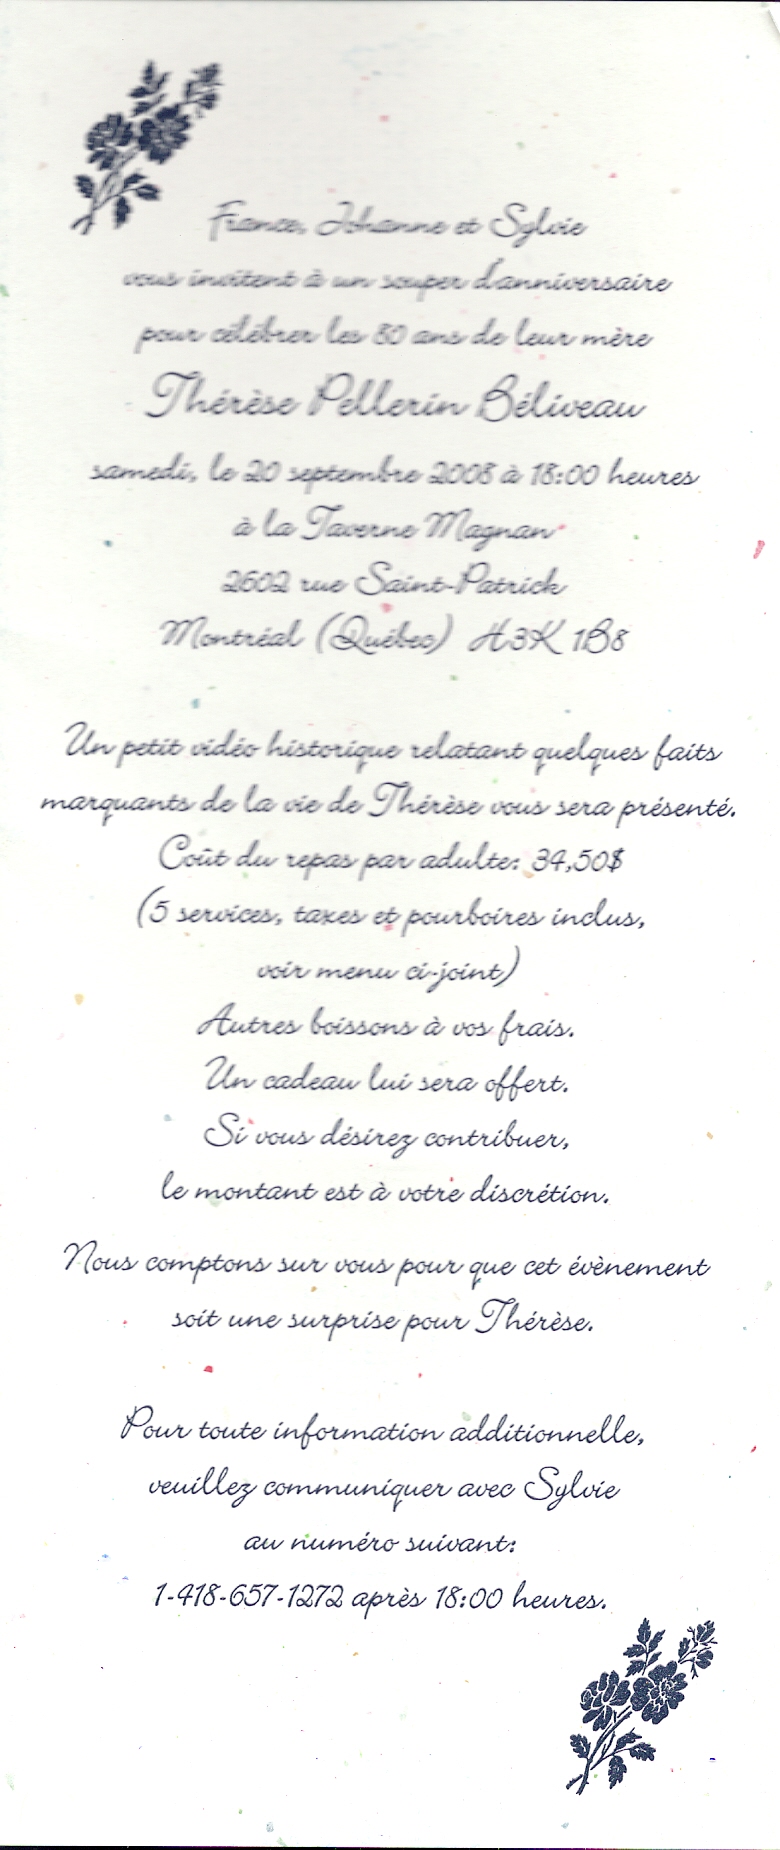 France, Johanne et Sylvie
vous invitent à un souper d'anniversaire
pour célébrer les 80 ans de leur mère
Thérèse Pellerin Béliveau
samedi, le 20 septembre 2008 à 18:00 heures
à la Taverne Magnan
2602 rue Saint-Patrick
Montréal (Québec) H3K 1B8
Un petit vidéo historique relatant quelques faits
marquants de la vie de Thérèse vous sera présenté.
Coût du repas par adulte: 34,50$
(5 services, taxes et pourboires inclus,
voir menu ci-joint)
Autres boissons à vos frais.
Un cadeau lui sera offert.
Si vous désirez contribuer,
le montant est à votre discrétion.
Nous comptons sur vous pour que cet évènement
soit une surprise pour Thérèse.
Pour toute information additionnelle,
veuillez communiquer avec Sylvie
au numéro suivant:
1-418-657-1272 après 18:00 heures.